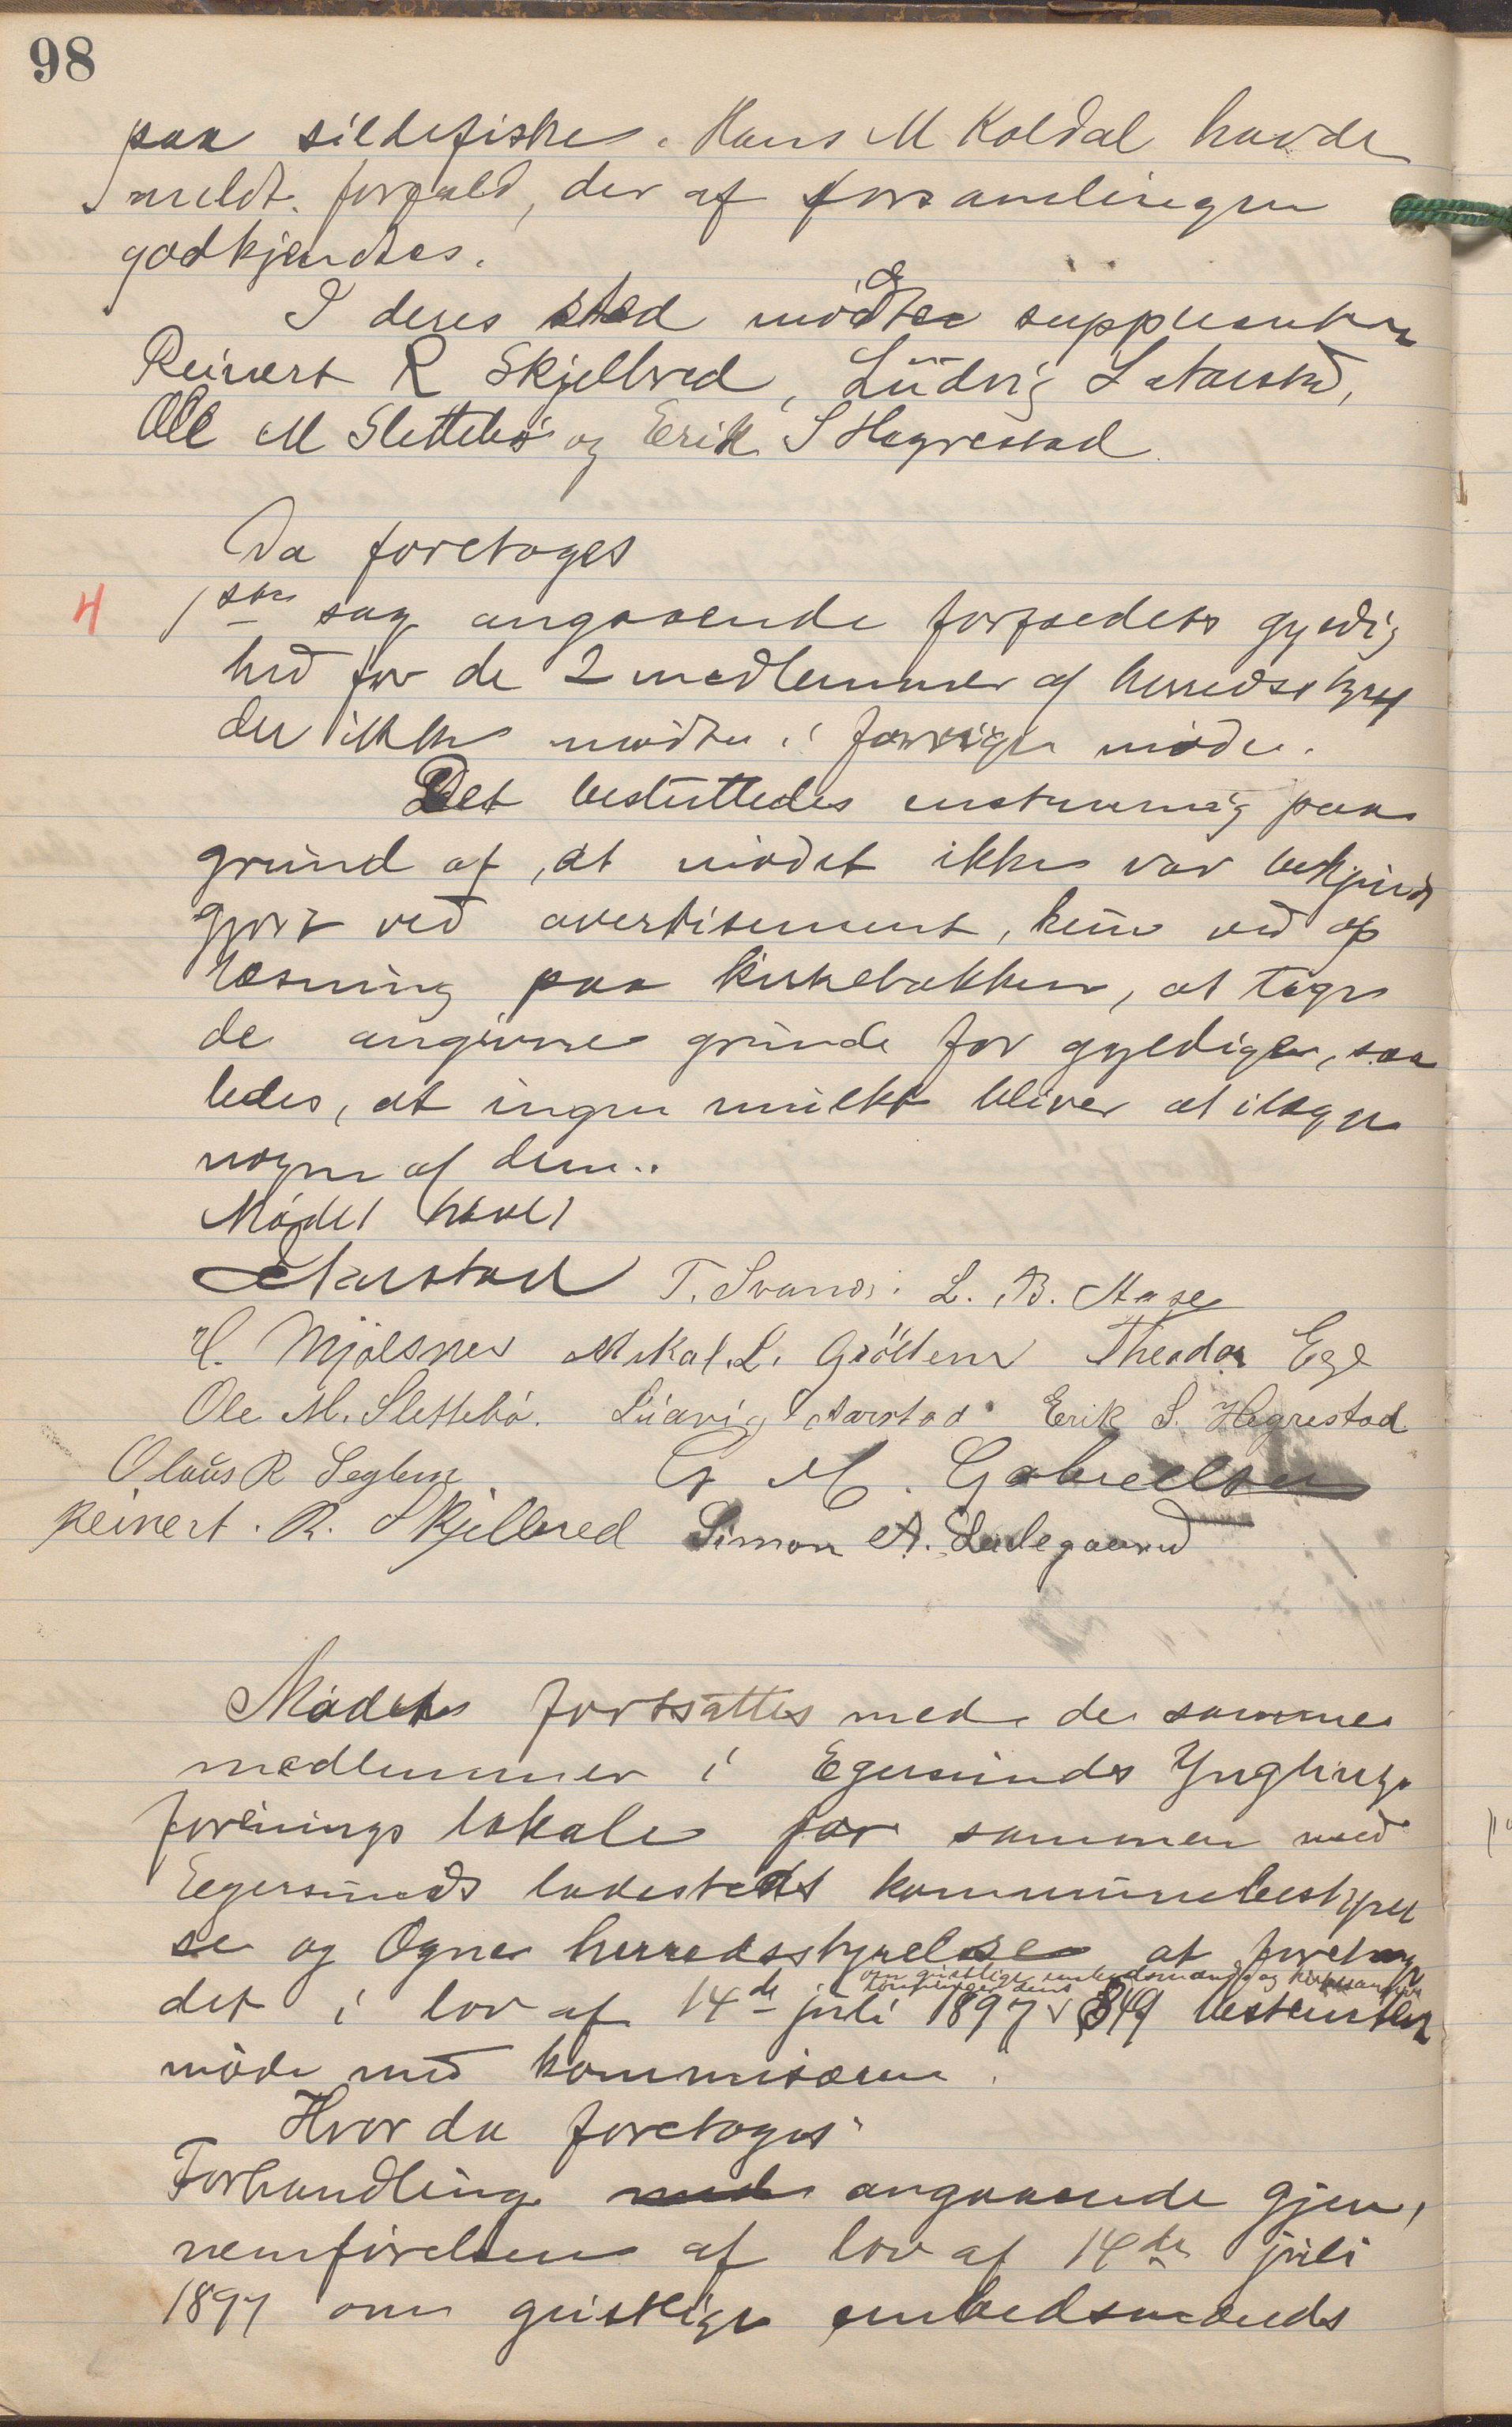 98
paa sildefiske. Hans M Koldal havde
meldt forfald, der af forsamlingen
godkjendtes.
I deres sted mødte suppleanterne
Reinert R Skjelbred, Lúdvig L Aarstad,
Ole M Slettebø og Erik S Hegrestad.
Da foretoges
4 1ste sag angaaende forfaldets gyldig
hed for de 2 medlemmer af herredsstyret
der ikke mødte i forrige møde.
Det besluttedes enstemmig paa
grund af, at mødet ikke var bekjendt
gjort ved avertisement, kun ved op
læsning paa kirkebakken, at tage
de angivne grunde for gyldige, saa
ledes, at ingen mulkt bliver at ilægge
nogen af dem..
Mødet hævet
Aarstad T. Svanes. L. B. Aase
H. Mjølsnes Mikal. L. Grøtten Theodor Ege
Ole M. Slettebø. Ludvig Aarstad Erik S. Hegrestad
Olaus R Seglem G M. Gabrielsen
Reinert. R. Skjelbred Simon A. Ladegaard
Mødet fortsattes med de samme
medlemmer i Egersunds Ynglinge
forenings lokale for sammen med
Egersunds ladesteds kommunebestyrel
se og Ogne herredsstyrelse at foretage
om geistlige embedsmænds og kirkesangeres
lønninger dens
det i lov af 14de juli 1897 § 49 bestemte
møde med kommisæren.
Hvor da foretoges
Forhandling med angaaende gjen,
nemførelsen af lov af 14de juli
1897 om geistlige embedsmænds